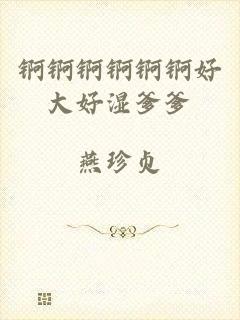 锕锕锕锕锕锕好
大好湿爹爹
燕珍贞